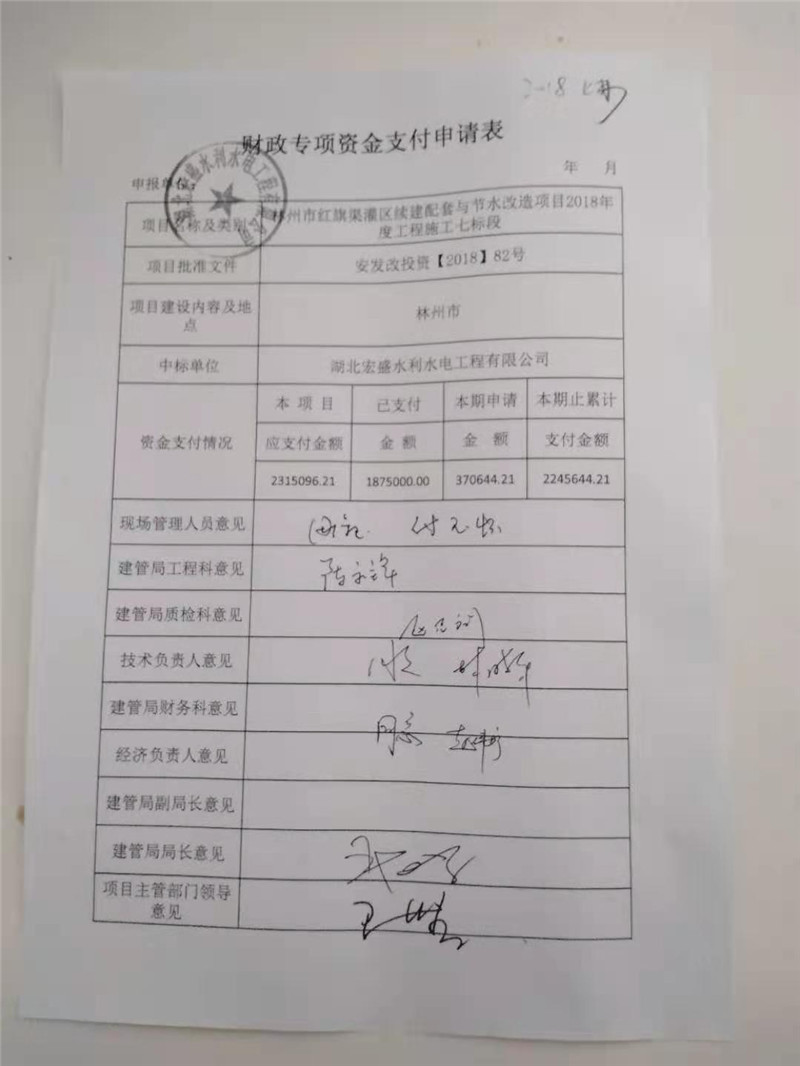 2018
财政专项资金支付申请表
年 月
申报单位
湖北宏盛水利水电工程有限公司
项目名称及类别
林州市红旗渠灌区续建配套与节水改造项目2018年
度工程施工七标段
项目批准文件
安发改投资【2018】82号
项目建设内容及地
点
林州市
中标单位
湖北宏盛水利水电工程有限公司
资金支付情况
本 项 目 已支付 本期申请 本期止累计
应支付金额 金 额 金 额 支付金额
2315096.21 1875000.00 370644.21 2245644.21
现场管理人员意见
建管局工程科意见
建管局质检科意见
技术负责人意见
建管局财务科意见
同意
经济负责人意见
建管局副局长意见
建管局局长意见
项目主管部门领导
意见